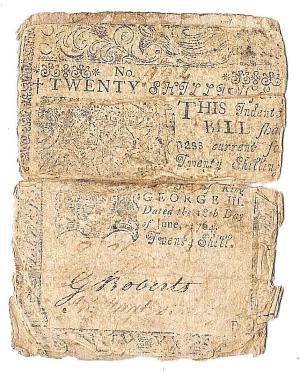 No.
TWENTY SHILLIN
THIS Indent
BILL sha
pass current fo
Twenty Shillin
of King
GEORGE III.
Dated the 18th Day
of June, 1764.
Twenty Shill.
G Roberts